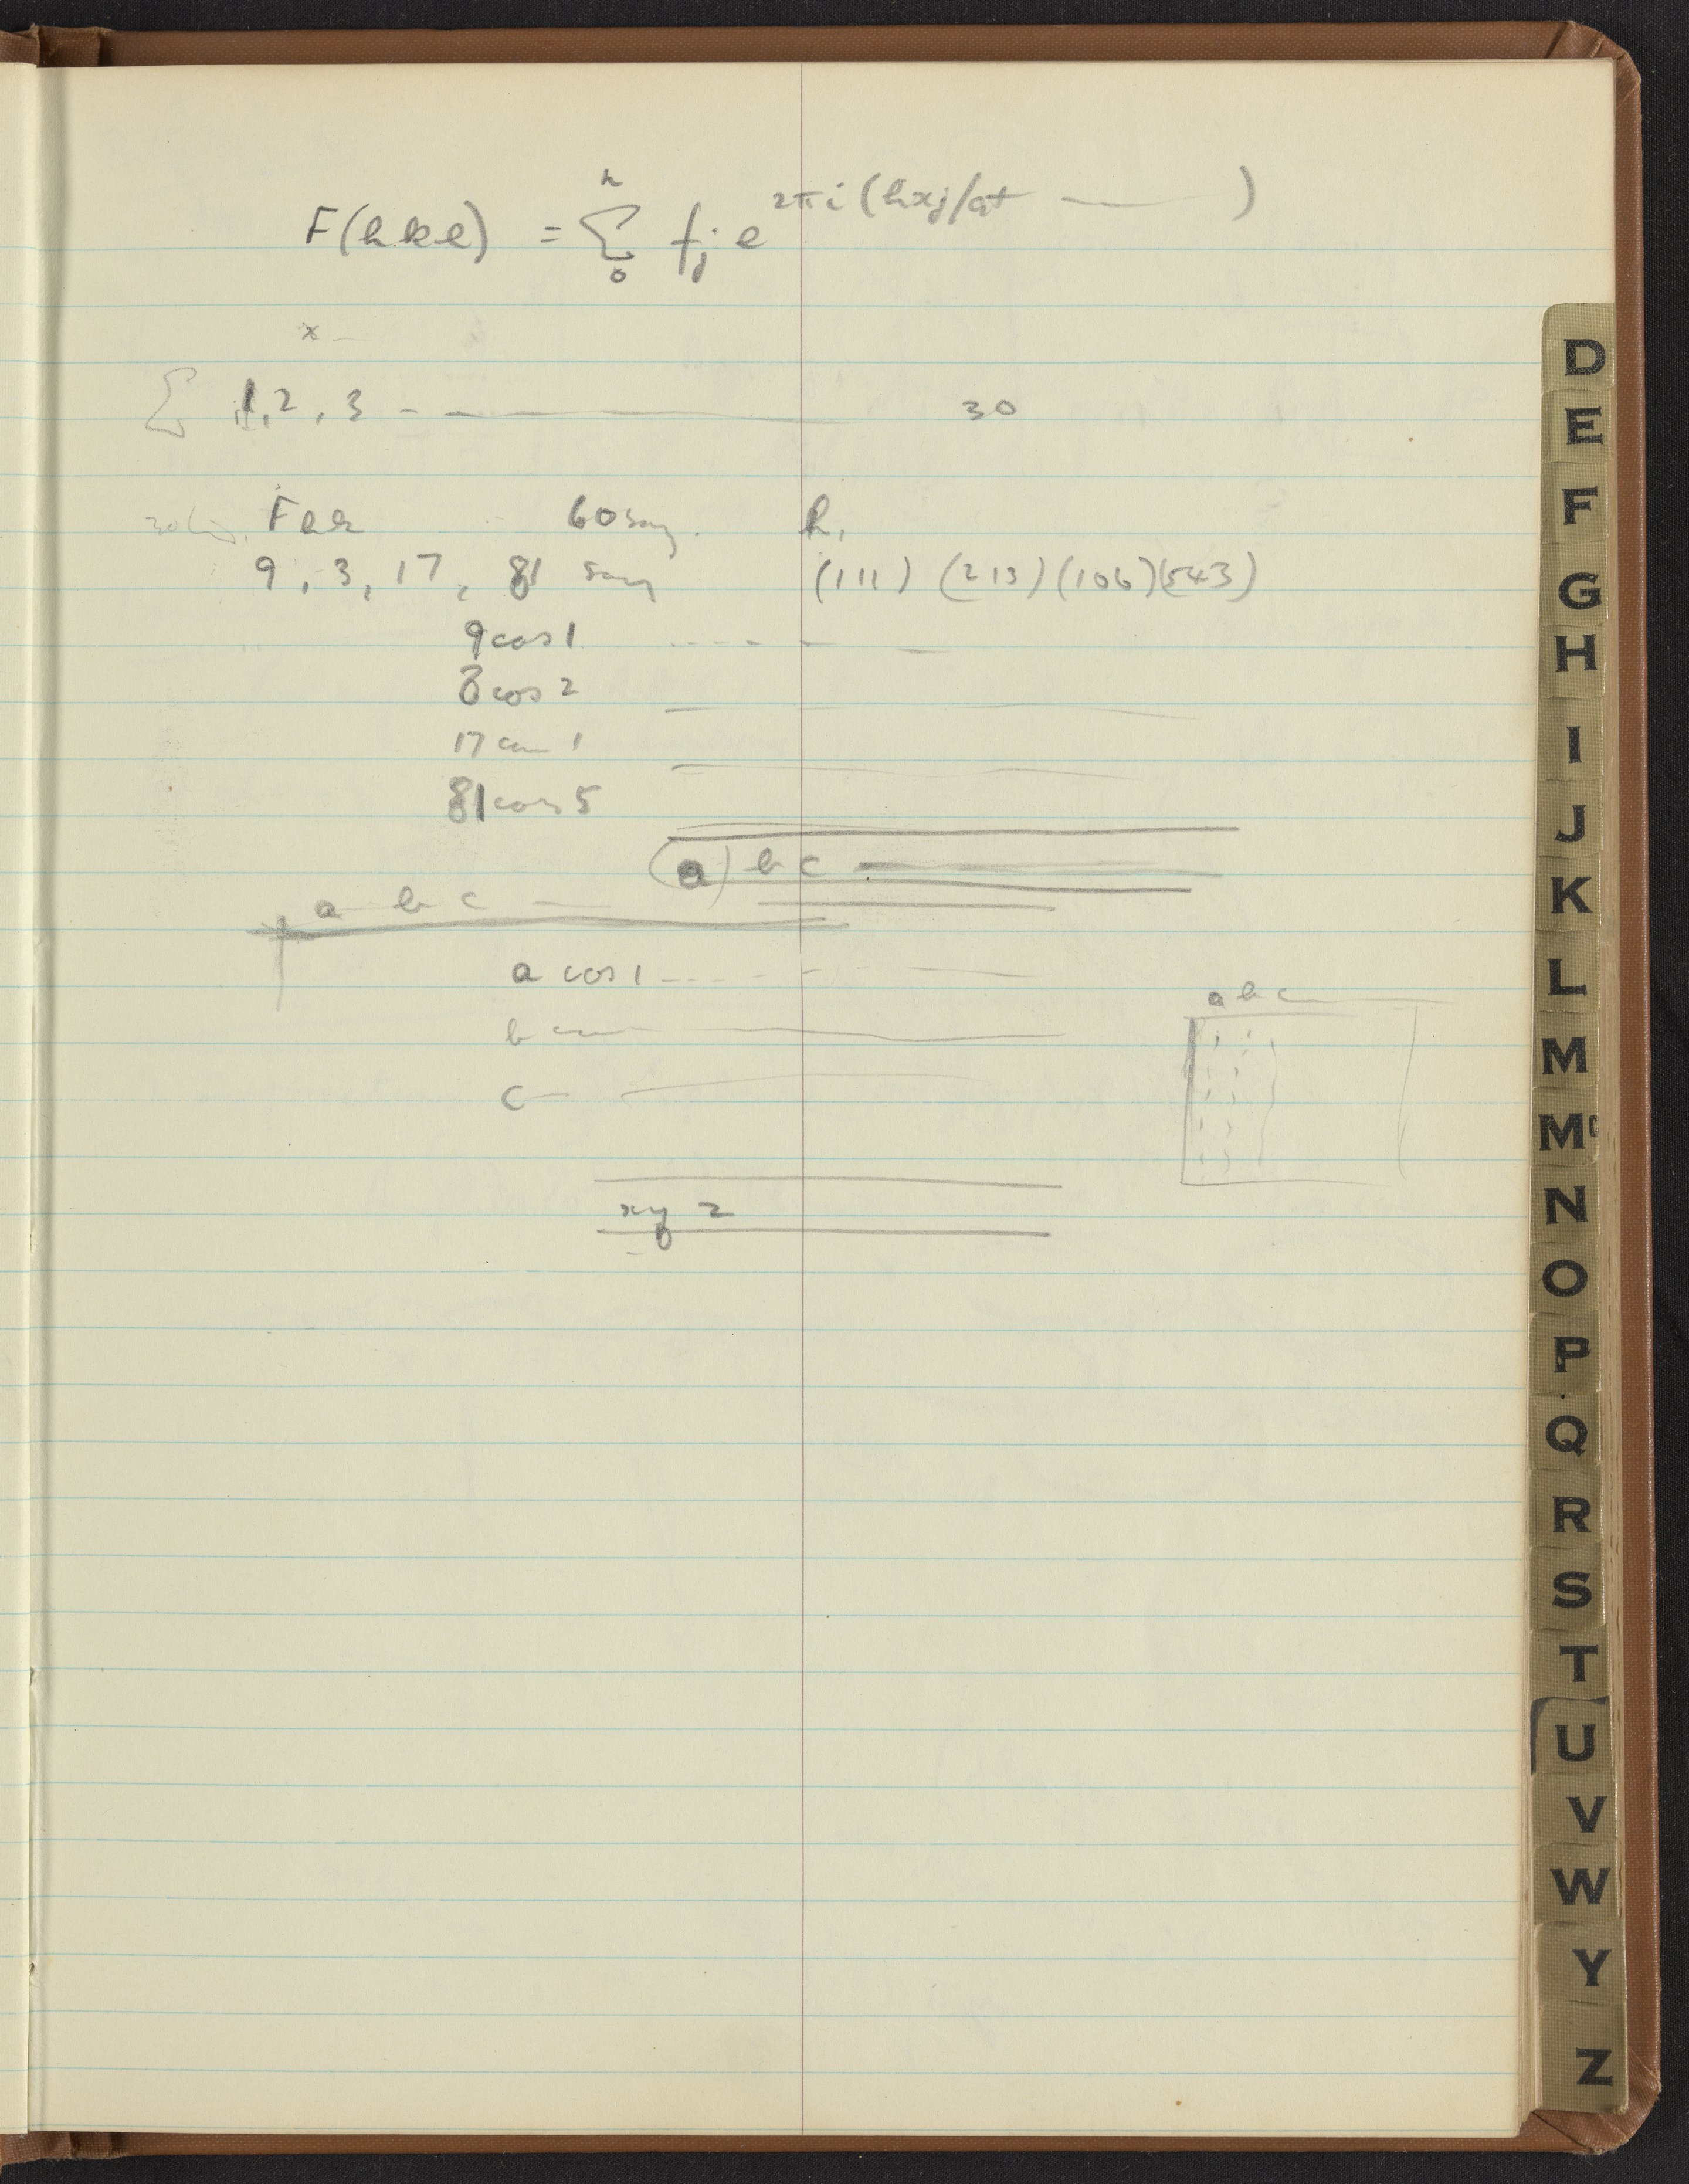 F(hkl) = n Σ 0 fj e 2πi (hxj/a+ — )
x –
Σ 1, 2, 3 - - — — 30
Fhk 60 say. h,
9, 3, 17, 81 say (111) (213) (106) (543)
9 cos 1 - - - -
3 cos 2
17 cos 1
81 cos 5
(a) b c —
a b c —
a cos 1 - - - -
a b c —
b —
c —
x y z
D
E
F
G
H
I
J
K
L
M
Mc
N
O
P
Q
R
S
T
U
V
W
Y
Z